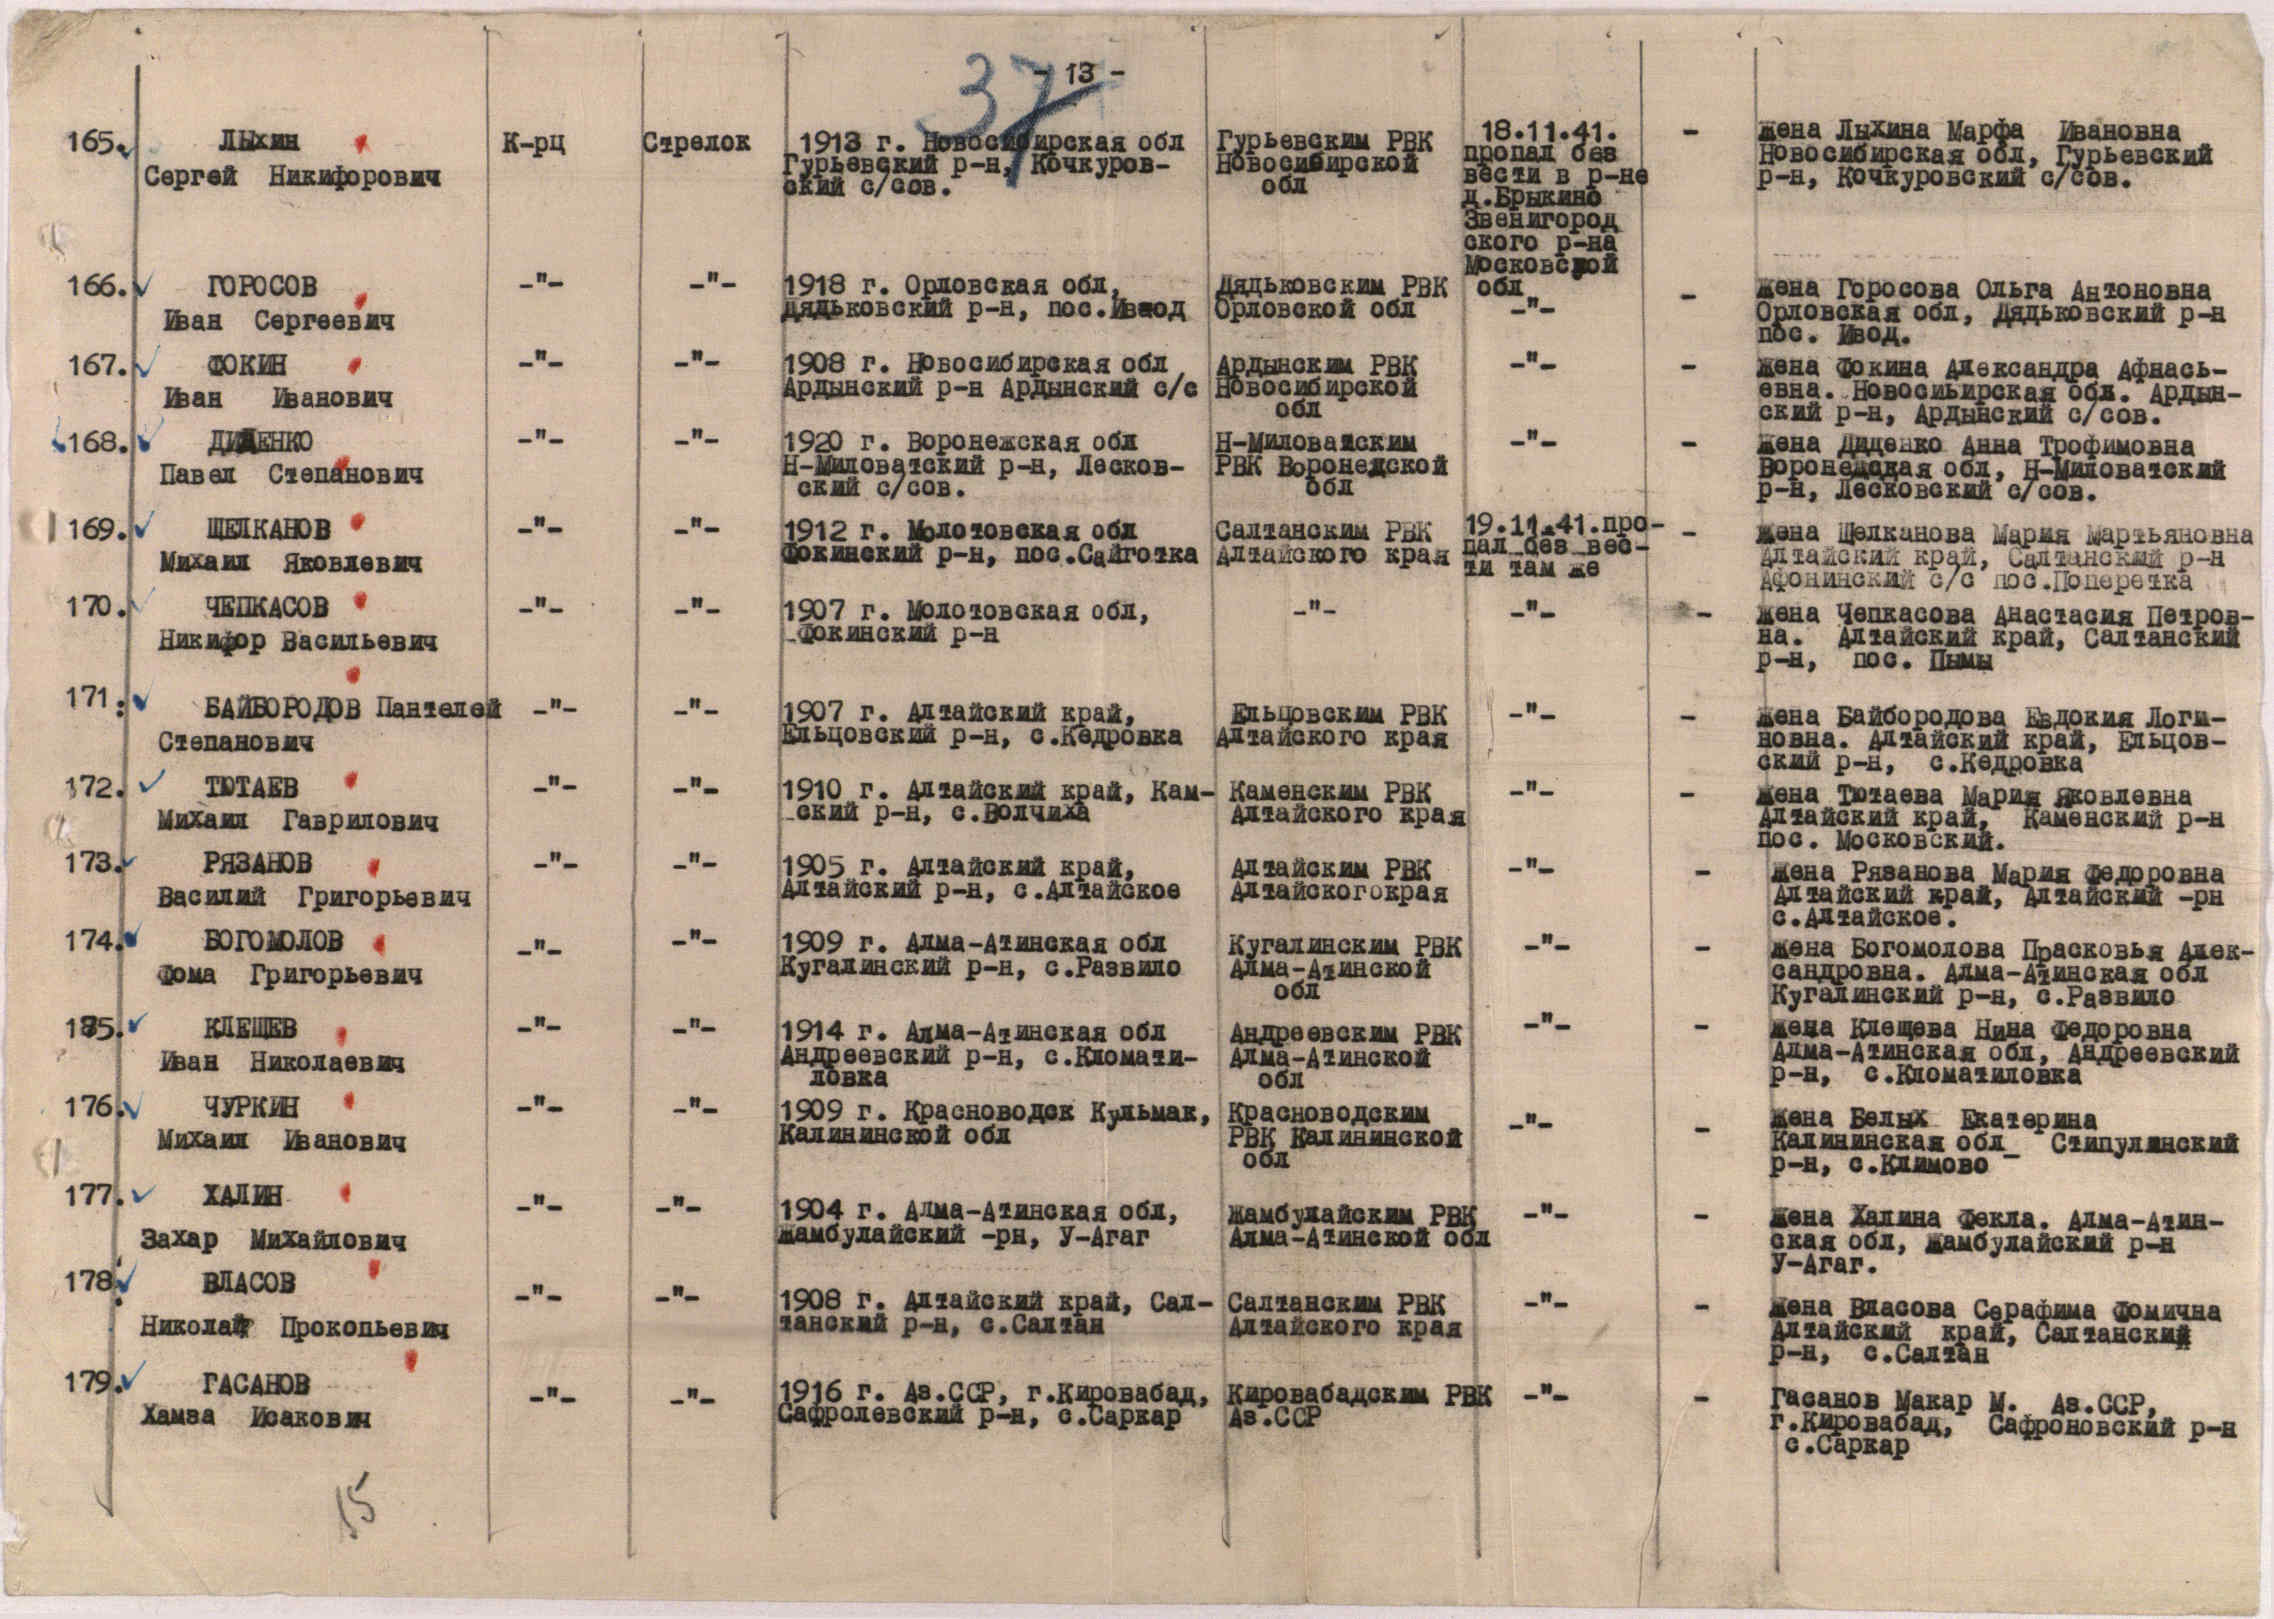 37
- 13 -
165. ЛЫхин К-рц Стрелок 1913 г. Новосибирская обл Гурьевским РВК 18.11.41. - Жена Лыхина Марфа Ивановна
Сергей Никифорович Гурьевский р-н, Кочкуров- Новосибирской пропал без Новосибирская обл, Гурьевский
ский с/сов. обл вести в р-не р-н, Кочкуровский с/сов.
д.Брыкино
Звенигород
ского р-на
Московской
166. ГОРОСОВ -"- -"- 1918 г. Орловская обл, Дядьковским РВК обл - Жена Горосова Ольга Антоновна
Иван Сергеевич Дядьковский р-н, пос.Ивод Орловской обл -"- Орловская обл, Дядьковский р-н
пос. Ивод.
167. ФОКИН -"- -"- 1908 г. Новосибирская обл Ардынским РВК -"- - Жена Фокина Александра Афнась-
Иван Иванович Ардынский р-н Ардынский с/с Новосибирской евна. Новосиьирская обл. Ардын-
обл ский р-н, Ардынский с/сов.
168. ДИДЕНКО -"- -"- 1920 г. Воронежская обл Н-Миловатским -"- - Жена Диденко Анна Трофимовна
Павел Степанович Н-Миловатский р-н, Лесков- РВК Воронежской Воронежская обл, Н-Миловатский
ский с/сов. обл р-н, Лесковский с/сов.
169. ЩЕЛКАНОВ -"- -"- 1912 г. Молотовская обл Салтанским РВК 19.11.41.про- - Жена Щелканова Мария Мартьяновна
Михаил Яковлевич Фокинский р-н, пос.Сайготка Алтайского края пал без вес- Алтайский край, Салтанский р-н
ти там же Афонинский с/с пос.Поперетка
170. ЧЕПКАСОВ -"- -"- 1907 г. Молотовская обл, -"- -"- - Жена Чепкасова Анастасия Петров-
Никифор Васильевич Фокинский р-н на. Алтайский край, Салтанский
р-н, пос. Пымы
171. БАЙБОРОДОВ Пантелей -"- -"- 1907 г. Алтайский край, Ельцовским РВК -"- - Жена Байбородова Евдокия Логи-
Степанович Ельцовский р-н, с.Кедровка Алтайского края новна. Алтайский край, Ельцов-
ский р-н, с.Кедровка
172. ТЮТАЕВ -"- -"- 1910 г. Алтайский край, Кам- Каменским РВК -"- - Жена Тютаева Мария Яковлевна
Михаил Гаврилович ский р-н, с.Волчиха Алтайского края Алтайский край, Каменский р-н
пос. Московский.
173. РЯЗАНОВ -"- -"- 1905 г. Алтайский край, Алтайским РВК -"- - Жена Рязанова Мария Федоровна
Василий Григорьевич Алтайский р-н, с.Алтайское Алтайскогокрая Алтайский край, Алтайский -рн
с.Алтайское.
174. БОГОМОЛОВ -"- -"- 1909 г. Алма-Атинская обл Кугалинским РВК -"- - Жена Богомолова Прасковья Алек-
Фома Григорьевич Кугалинский р-н, с.Развило Алма-Атинской сандровна. Алма-Атинская обл
обл Кугалинский р-н, с.Развило
175. КЛЕЩЕВ -"- -"- 1914 г. Алма-Атинская обл Андреевским РВК -"- - Жена Клещева Нина Федоровна
Иван Николаевич Андреевский р-н, с.Кломати- Алма-Атинской Алма-Атинская обл, Андреевский
ловка обл р-н, с.Кломатиловка
176. ЧУРКИН -"- -"- 1909 г. Красноводск Кульмак, Красноводским -"- - Жена Белых Екатерина
Михаил Иванович Калининской обл РВК Калининской Калининская обл Стипулинский
обл р-н, с.Климово
177. ХАЛИН -"- -"- 1904 г. Алма-Атинская обл, Жамбулайским РВК -"- - Жена Халина Фекла. Алма-Атин-
Захар Михайлович Жамбулайский -рн, У-Агаг Алма-Атинской обл ская обл, Жамбулайский р-н
У-Агаг.
178. ВЛАСОВ -"- -"- 1908 г. Алтайский край, Сал- Салтанским РВК -"- - Жена Власова Серафима Фомична
Николай Прокопьевич танский р-н, с.Салтан Алтайского края Алтайский край, Салтанский
р-н, с.Салтан
179. ГАСАНОВ -"- -"- 1916 г. Аз.ССР, г.Кировабад, Кировабадским РВК -"- - Гасанов Макар М. Аз.ССР,
Хамза Исакович Сафролевский р-н, с.Саркар Аз.ССР г.Кировабад, Сафроновский р-н
с.Саркар
15